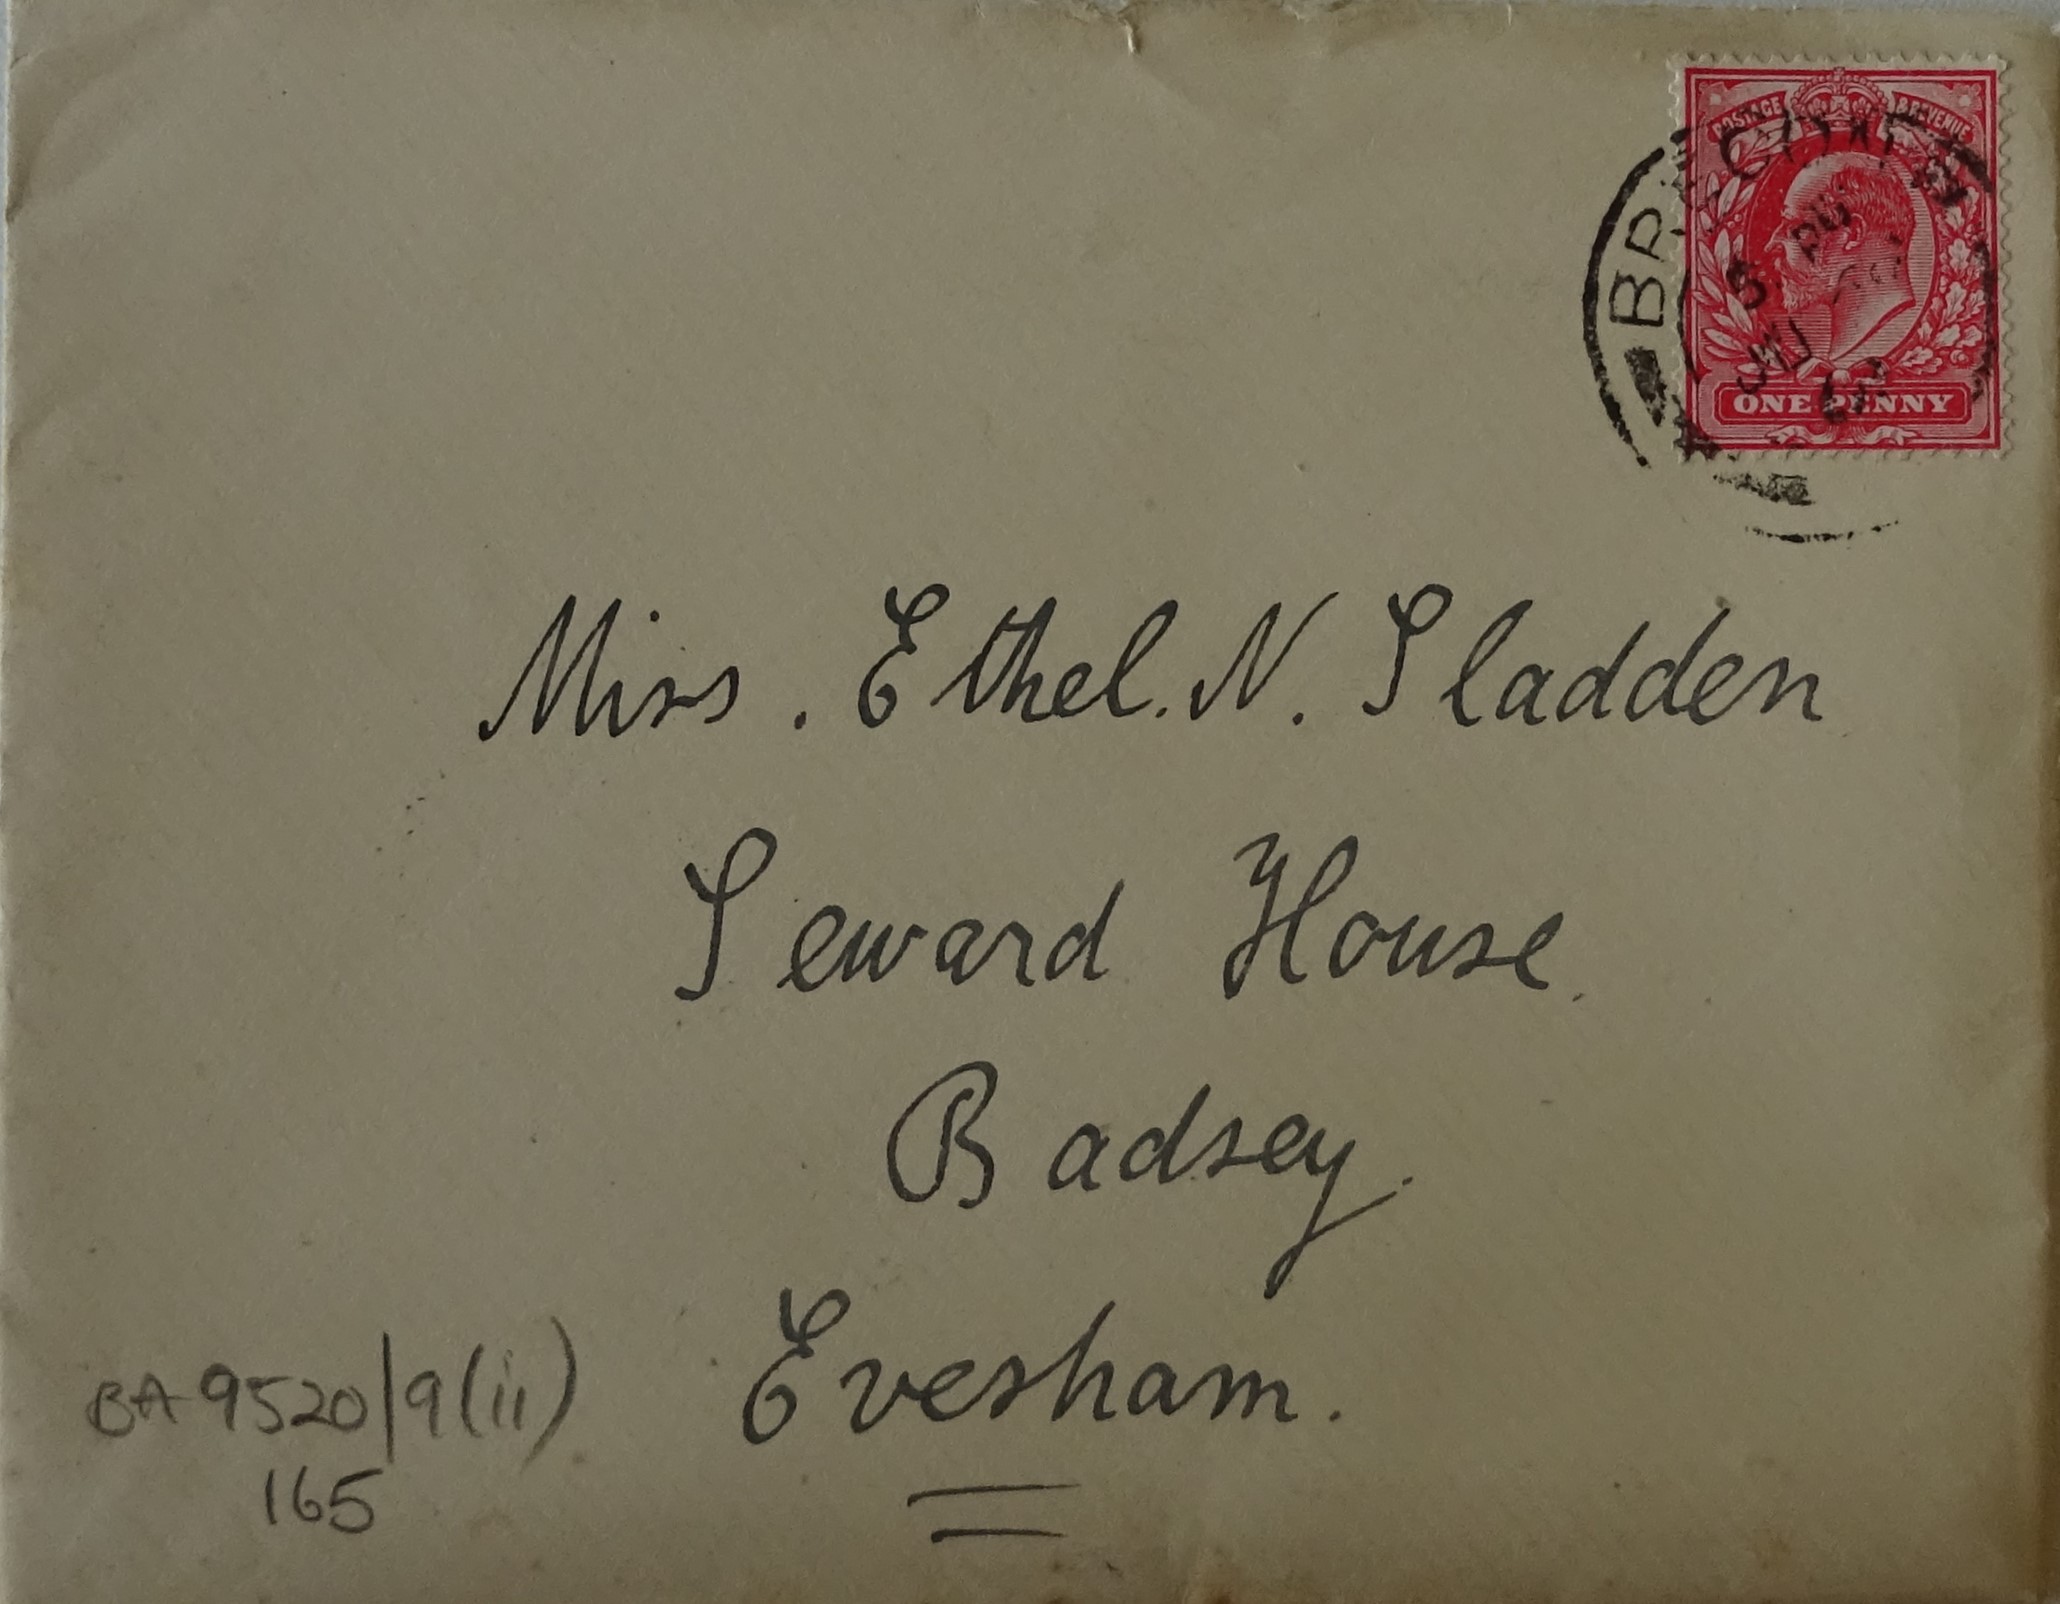 POSTAGE & REVENUE
5 PM
JU
12
ONE PENNY
Miss. Ethel. N. Sladden
Seward House.
Badsey.
Evesham.
BA 9520/9(ii)
165